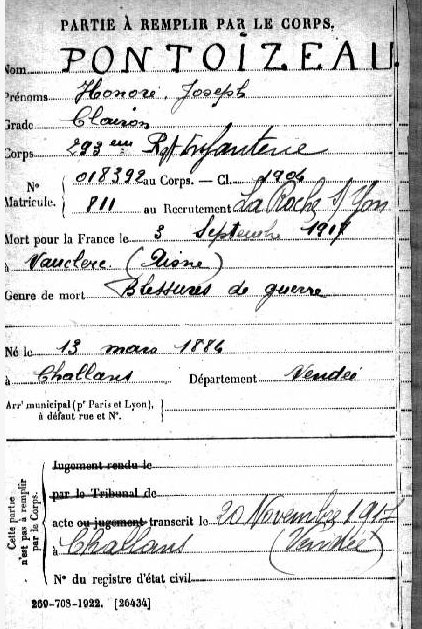 PARTIE À REMPLIR PAR LE CORPS.
Nom PONTOIZEAU.
Prénoms Honoré, Joseph
Grade Clairon
Corps 293 eme Rgt Infanterie
N° Matricule. { 018392 au Corps. — Cl. 1904
811 au Recrutement La Roche s/ Yon
Mort pour la France le 3 Septembre 1917
à Vauclerc (Aisne)
Genre de mort Blessures de guerre
Né le 13 mars 1884
à Challans Département Vendée
Arrt municipal (pr Paris et Lyon), à défaut rue et N°.
Cette partie n'est pas à remplir par le Corps.
Jugement rendu le
par le Tribunal de
acte ou jugement transcrit le 20 Novembre 1917
à Challans (Vendée)
N° du registre d'état civil
269-708-1922. [26434]